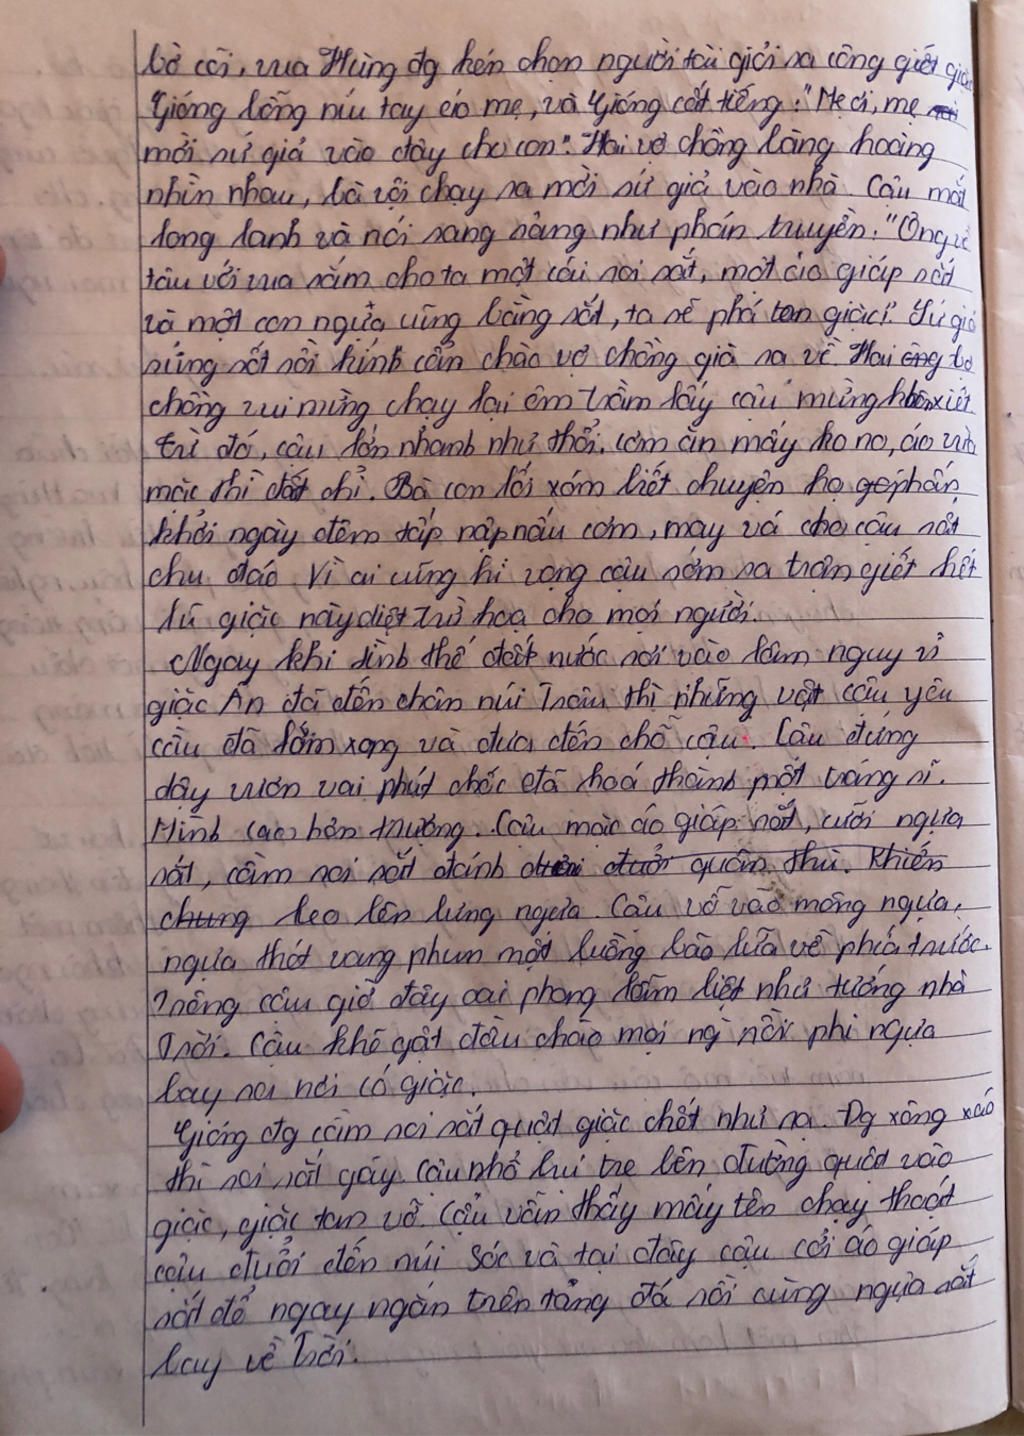 bờ cõi, vua Hùng đg kén chọn người tài giỏi ra công giết giặc
Gióng bỗng níu tay áo mẹ, và Gióng cất tiếng: "Mẹ ơi, mẹ
mời sứ giả vào đây cho con". Hai vợ chồng bàng hoàng
nhìn nhau, bà vội chạy ra mời sứ giả vào nhà. Cậu mắt
long lanh và nói sang sảng như phán truyền: "Ông về
tâu với vua sắm cho ta một cái roi sắt, một áo giáp sắt
và một con ngựa cũng bằng sắt, ta sẽ phá tan giặc!". Sứ giả
sửng sốt rồi kính cẩn chào vợ chồng già ra về. Hai ông bà
chồng vui mừng chạy lại ôm trầm lấy cậu mừng khôn xiết.
Từ đó, cậu lớn nhanh như thổi, cơm ăn mấy ko no, áo vừa
mặc thì đứt chỉ. Bà con lối xóm biết chuyện họ phấn
khởi ngày đêm tấp nập nấu cơm, may vá cho cậu rất
chu đáo. Vì ai cũng hi vọng cậu sớm ra trận giết hết
lũ giặc này diệt trừ hoạ cho mọi người.
Ngay khi tình thế đất nước rơi vào lâm nguy vì
giặc Ân đã đến chân núi Trâu thì những vật cậu yêu
cầu đã làm xong và đưa đến chỗ cậu. Cậu đứng
dậy vươn vai phút chốc đã hoá thành một tráng sĩ.
Mình cao hơn trượng. Cậu mặc áo giáp sắt, cưỡi ngựa
sắt, cầm roi sắt đánh đuổi quân thù. Khiến
chung leo lên lưng ngựa. Cậu vỗ vào mông ngựa,
ngựa thót vang phun một luồng bão lửa về phía trước.
Trông cậu giờ đây oai phong lẫm liệt như tướng nhà
Trời. Cậu khẽ gật đầu chào mọi ng` rồi phi ngựa
bay rơi nơi có giặc.
Gióng đg cầm roi sắt quật giặc chết như rạ. Đg xông xáo
thì roi sắt gãy. Cậu nhổ bụi tre bên đường quật vào
giặc, giặc tan vỡ. Cậu vẫn thấy mấy tên chạy thoát
cậu đuổi đến núi Sóc và tại đây cậu cởi áo giáp
sắt để ngay ngắn trên tảng đá rồi cùng ngựa sắt
bay về Trời.